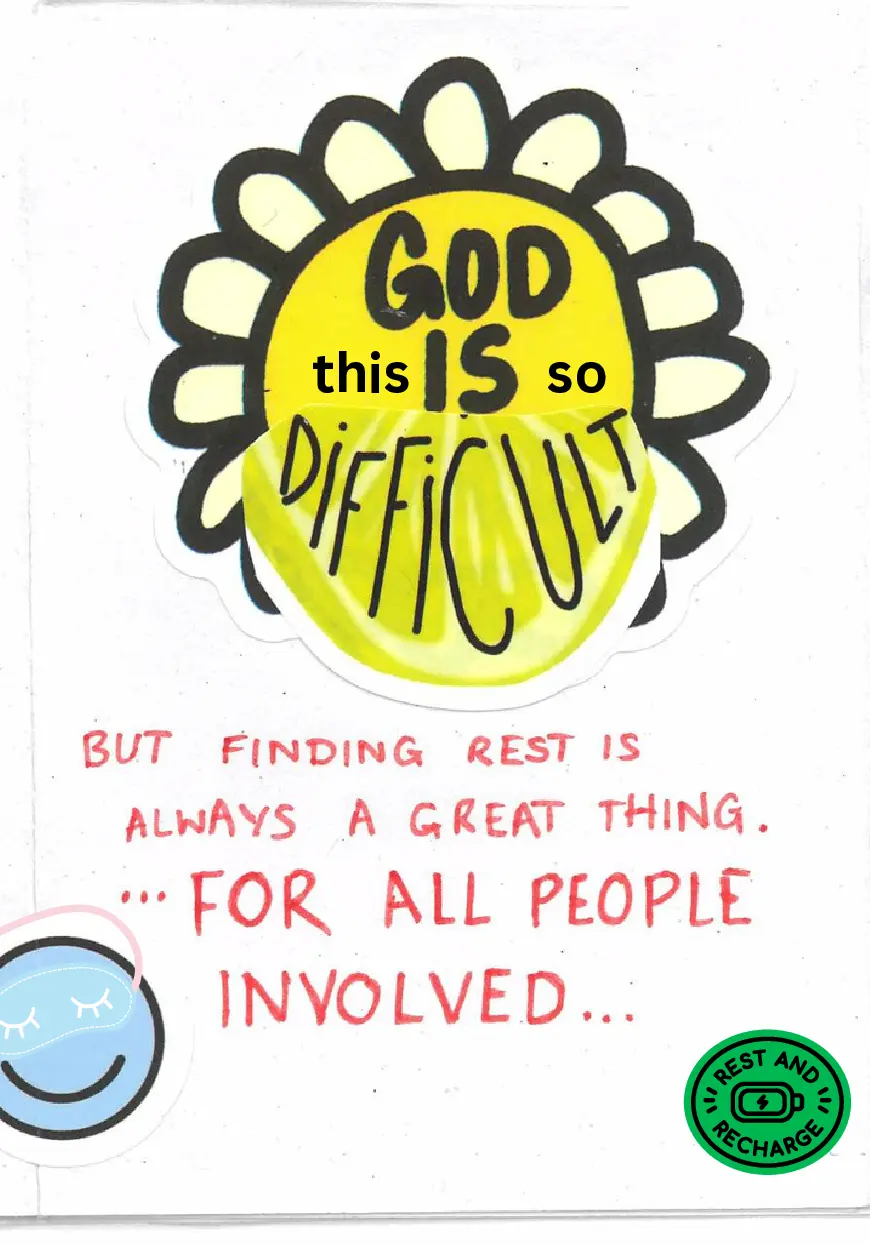 GOD
this IS so
DiFFiCULT
BUT FINDING REST IS
ALWAYS A GREAT THING.
...FOR ALL PEOPLE
INVOLVED...
REST AND
RECHARGE